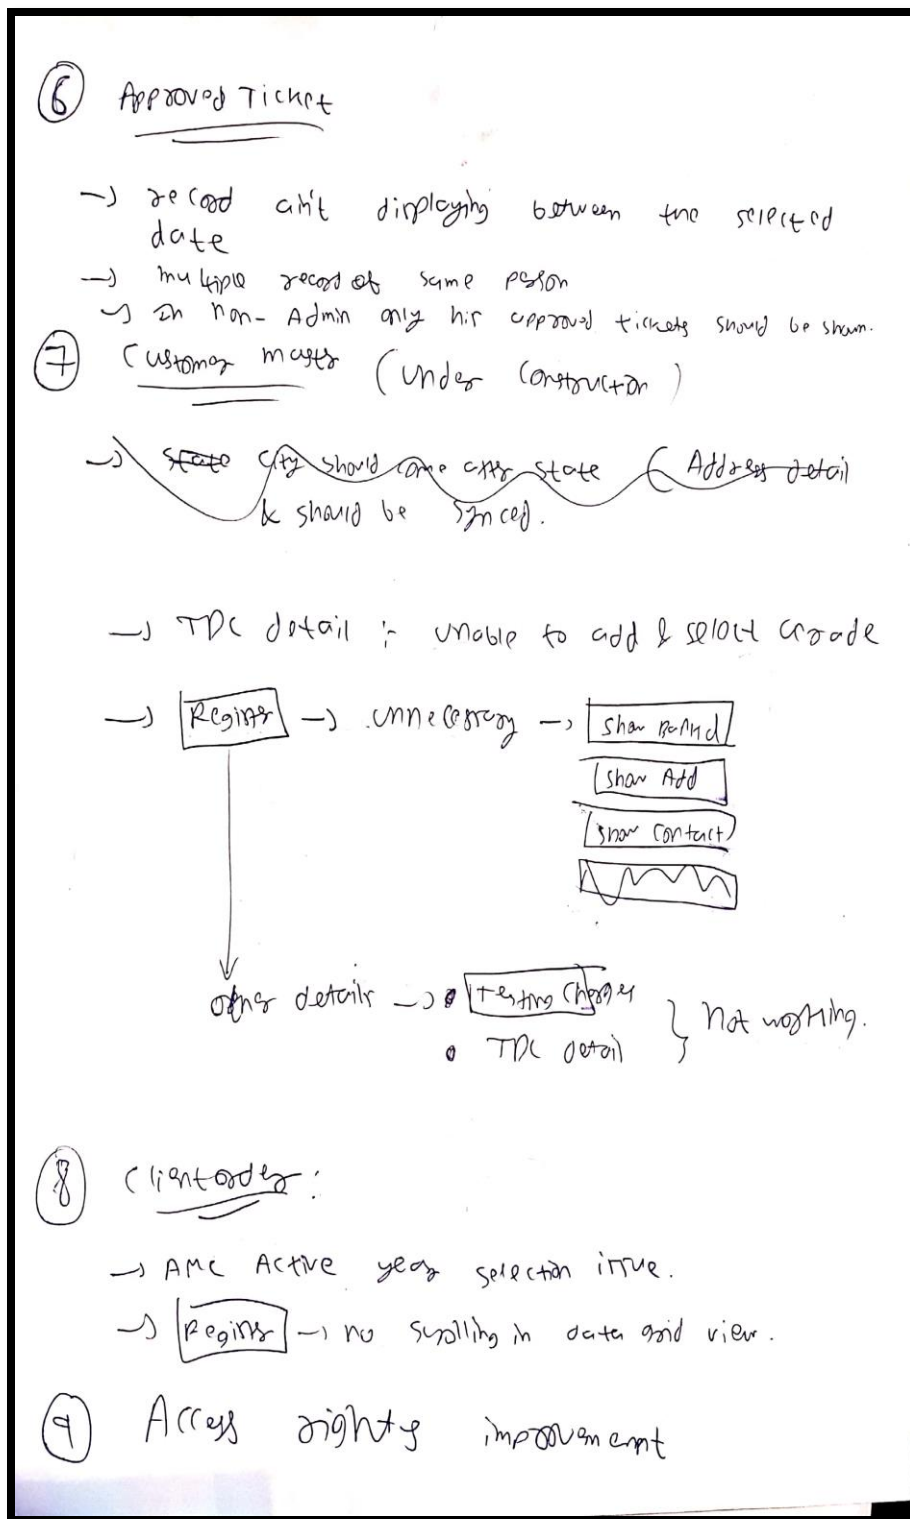 6 Approved Ticket
→ record ain't displaying between the selected
date
→ multiple record of same person
→ In non-Admin only his approved tickets should be shown.
7 Customer master (Under Construction)
→ State City should come after state (Address detail
& should be synced.
→ TDC detail :- Unable to add & select Grade
→ Register → unnecessary → Show
Show Add
Show Contact
other details → • Testing Charges
• TDC detail } Not working.
8 Client order :
→ AMC Active year selection issue.
→ Register → no scrolling in data grid view.
9 Access rights improvement